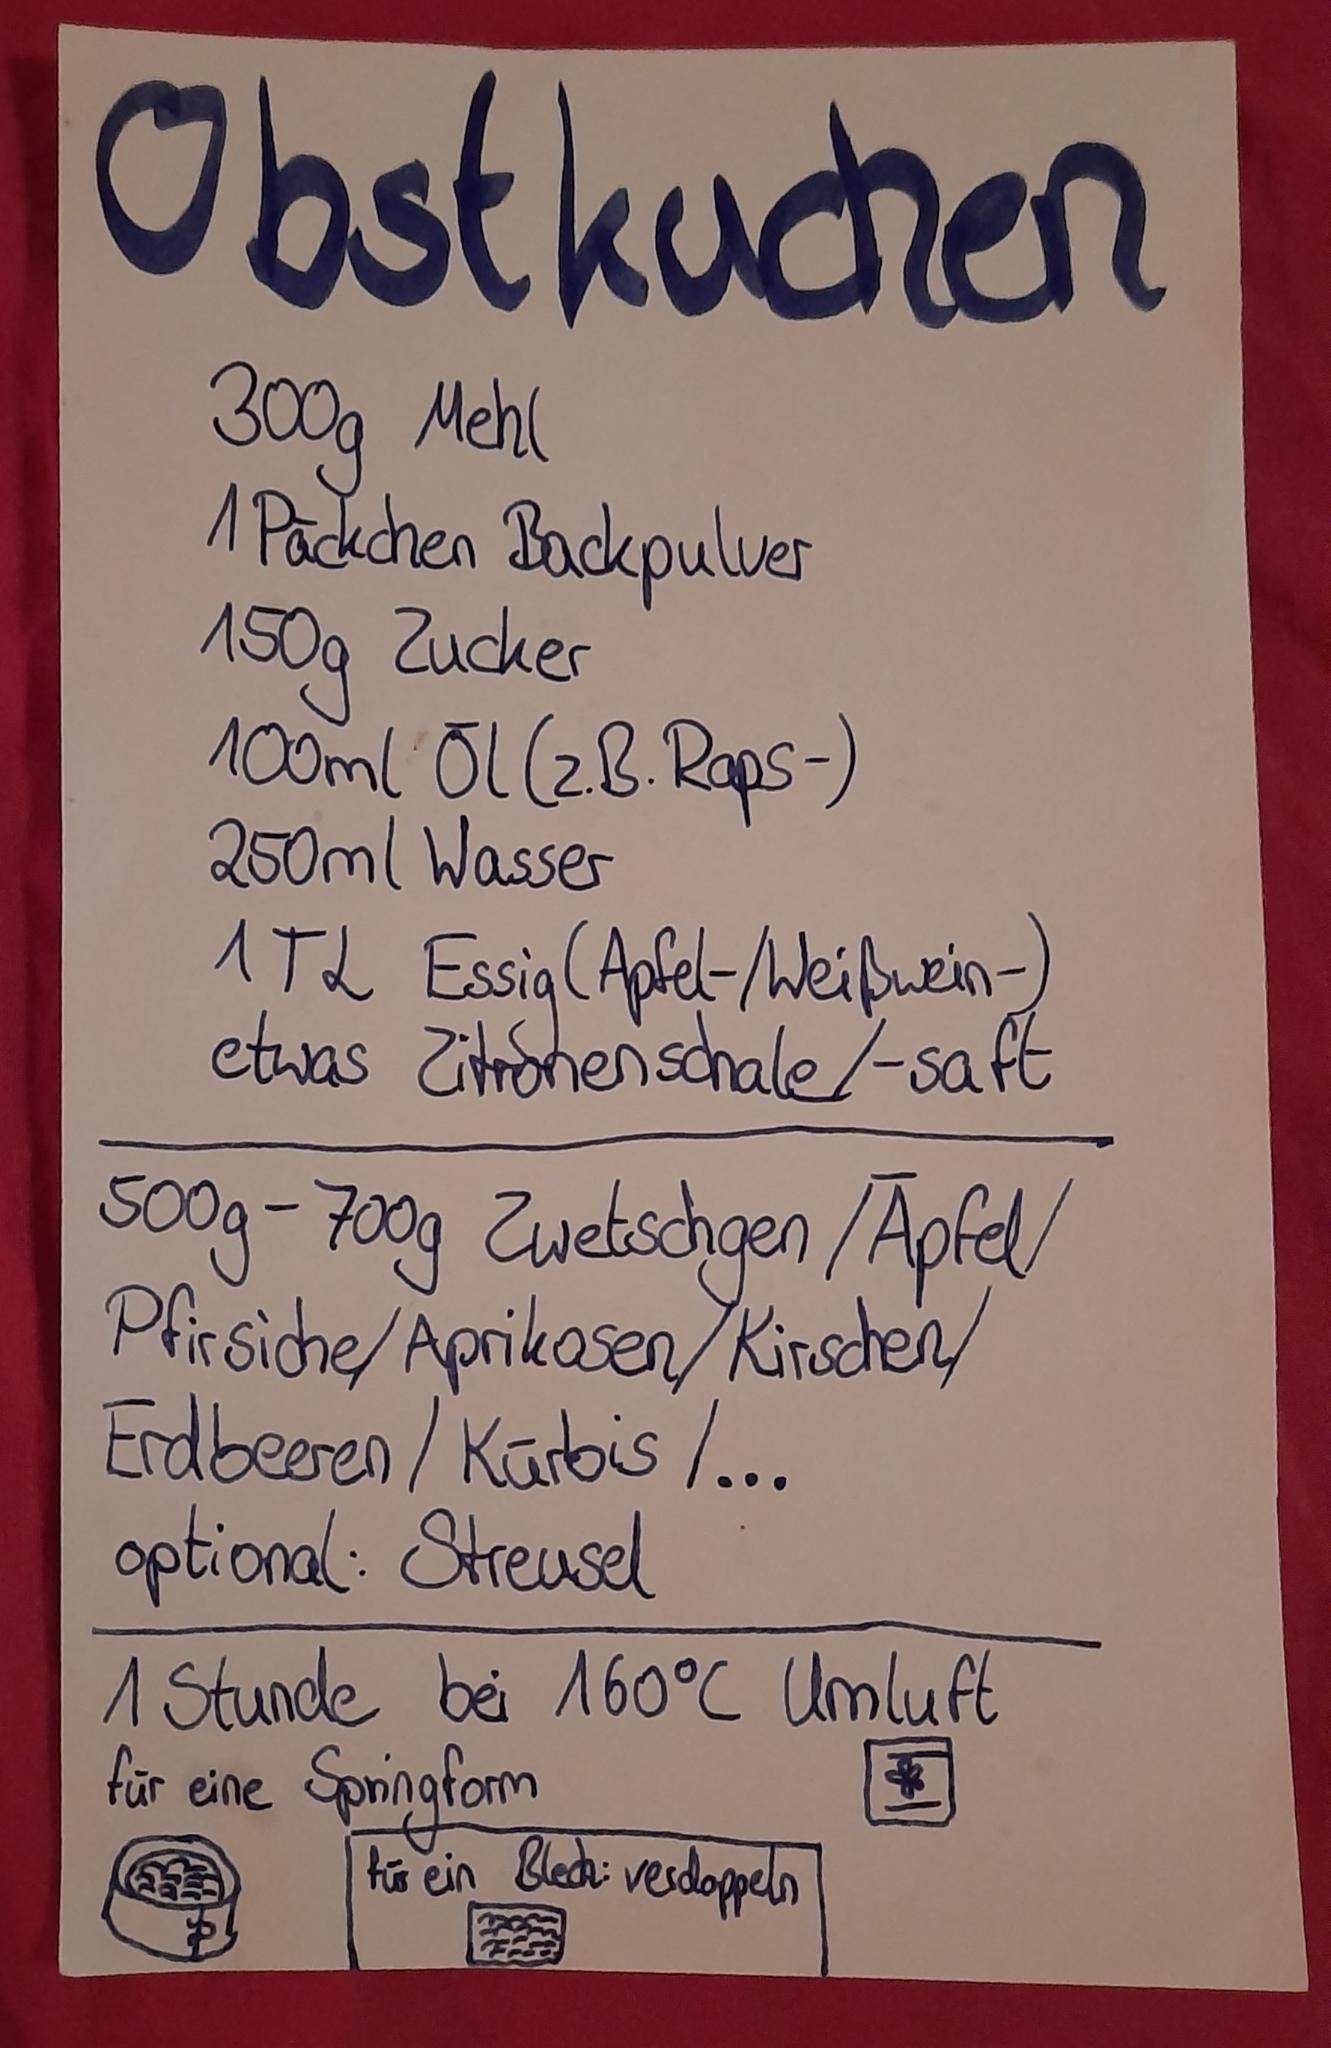 Obstkuchen
300g Mehl
1 Päckchen Backpulver
150g Zucker
100ml Öl (z.B. Raps-)
250ml Wasser
1 TL Essig (Apfel-/Weißwein-)
etwas Zitronenschale/-saft
500g - 700g Zwetschgen / Äpfel/
Pfirsiche/Aprikosen/Kirschen/
Erdbeeren / Kürbis / ...
optional: Streusel
1 Stunde bei 160°C Umluft
für eine Springform
für ein Blech: verdoppeln